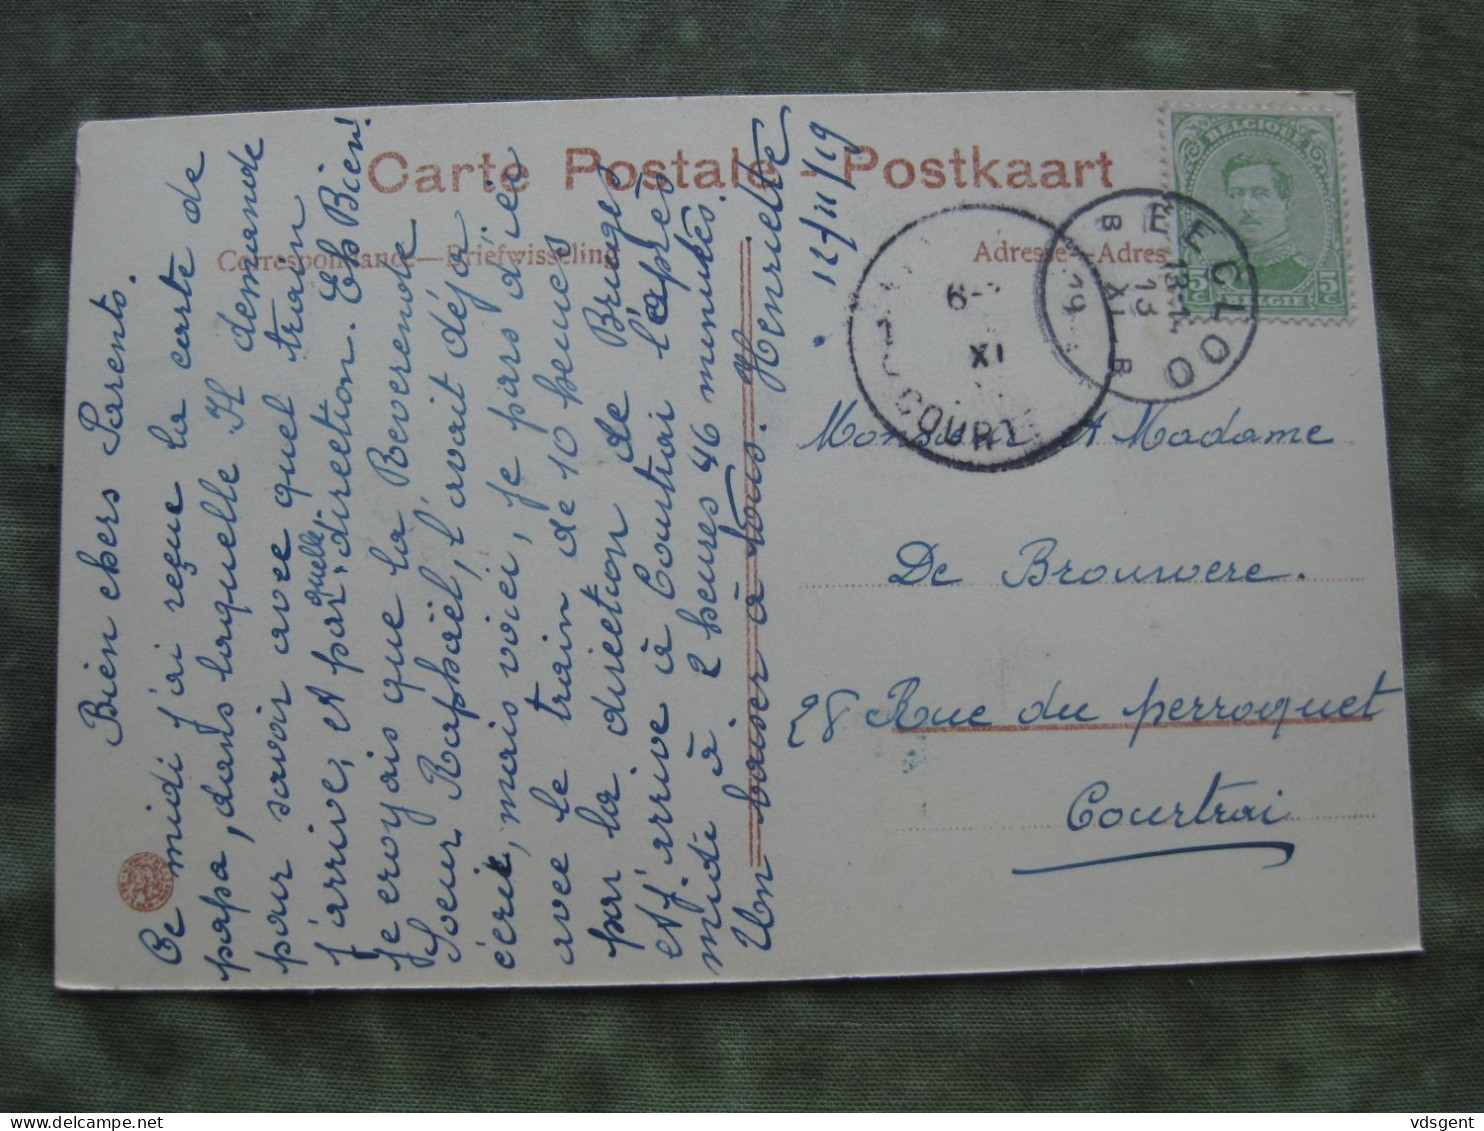 Carte Postale - Postkaart
Correspondance—Briefwisseling
Adresse—Adres
Bien chers Parents.
Ce midi j'ai reçue la carte de
papa, dans laquelle Il demande
pour savoir avec quel train
j'arrive, et par quelle direction. Eh Bien!
Je croyais que la Reverende
Soeur Raphaël, l'avait déjà
écrit, mais voici, je pars d'ici
avec le train de 10 heures
par la direction de Bruges
et j'arrive à Courtrai l'après
midi à 2 heures 46 minutes.
Un baiser à vous. Henriette
12/11/19
Monsieur et Madame
De Brouwere.
28 Rue du perroquet
Courtrai
BELGIQUE
5c 5c
BELGIE
EECLOO
B B
13-14
13
XI
19
6-
XI
COURT
vdsgent
delcampe.net